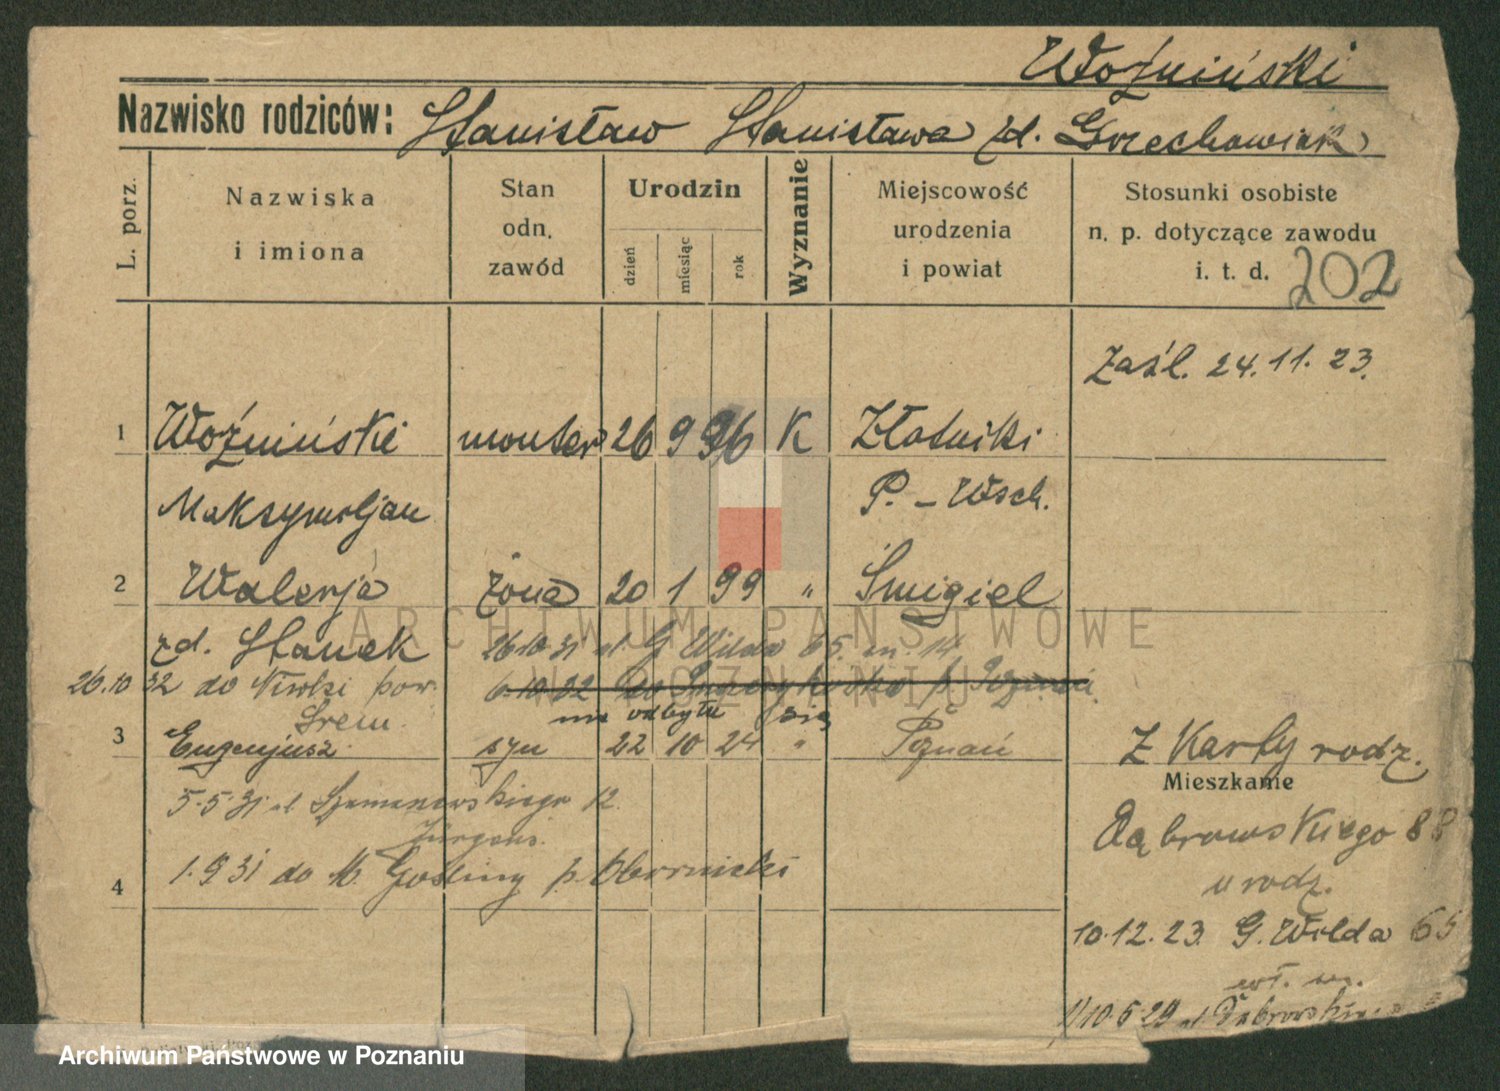 Woźniński
Nazwisko rodziców: Stanisław Stanisława zd. Grzechowiak
L. porz.
Nazwiska i imiona
Stan odn. zawód
Urodzin
dzień
miesiąc
rok
Wyznanie
Miejscowość urodzenia i powiat
Stosunki osobiste n. p. dotyczące zawodu i. t. d.
202
Zaśl. 24.11.23.
1 Woźniński monter 26 9 96 K Złotniki
Maksymiljan P. - Wsch.
2 Walerja żona 20 1 99 " Śmigiel
zd. Stanek 26.10.31 ul. G Wilda 65. m 14
26.10 32 do Niwki pow. 6.10.32 do
Śrem. nie odbyła się
3 Eugenjusz syn 22 10 24 " Poznań Z Karty rodz.
Mieszkanie
5.5.31 ul Szamarzewskiego 12 Dąbrowskiego 88
u rodz.
1.9 31 do M. Gośliny p. Obornicki
4
10.12.23. G. Wilda 65
1/10.6.29 ul Dąbrowskiego
ARCHIWUM PAŃSTWOWE
W POZNANIU
Archiwum Państwowe w Poznaniu